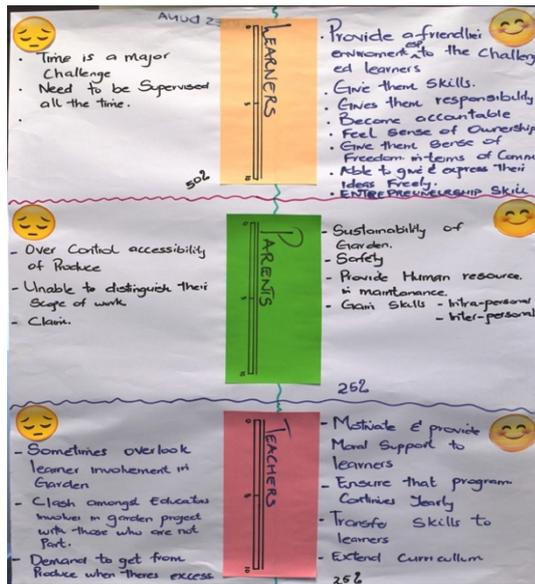 LEARNERS
0
5
10
· Time is a major
Challenge
· Need to be Supervised
all the time.
·
50%
· Provide a friendlier
enviroment esp to the Challeng
ed learners
· Give them Skills.
· Gives them responsibility
· Become accountable
· Feel Sense of Ownership
· Give them Sense of
Freedom in terms of Commu
· Able to give & express their
Ideas Freely.
· ENTREPREUNELRSHIP SKILL
PARENTS
0
5
10
- Over Control accessibility
of Produce
- Unable to distinguish their
Scope of work
- Claim.
- Sustainability of
Garden.
- Safety
- Provide Human resource
in maintanance.
- Gain Skills - Intra-personal
- Inter-personal
25%
TEACHERS
0
5
10
- Sometimes overlook
learner involvement in
Garden
- Clash amongst Educators
involves in garden project
with those who are not
Part.
- Demand to get from
Produce when theres excess
- Motivate & provide
Moral Support to
learners
- Ensure that program
Continues Yearly
- Transfer Skills to
learners
- Extend Curriculum
25%